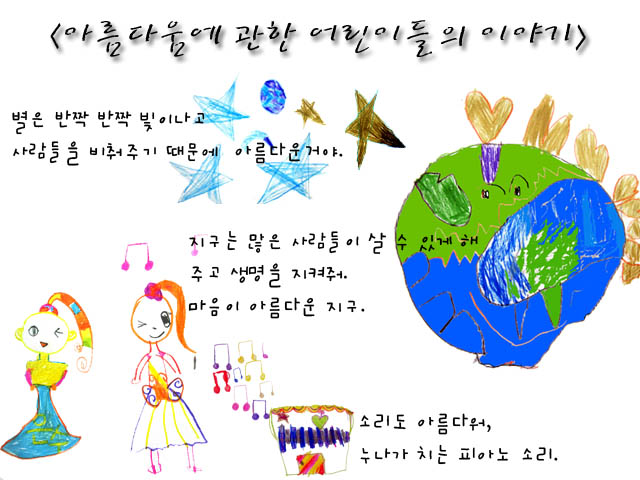 <아름다움에 관한 어린이들의 이야기>
별은 반짝 반짝 빛이나고
사람들을 비춰주기 때문에 아름다운거야.
지구는 많은 사람들이 살 수 있게 해
주고 생명을 지켜줘.
마음이 아름다운 지구.
소리도 아름다워,
누나가 치는 피아노 소리.